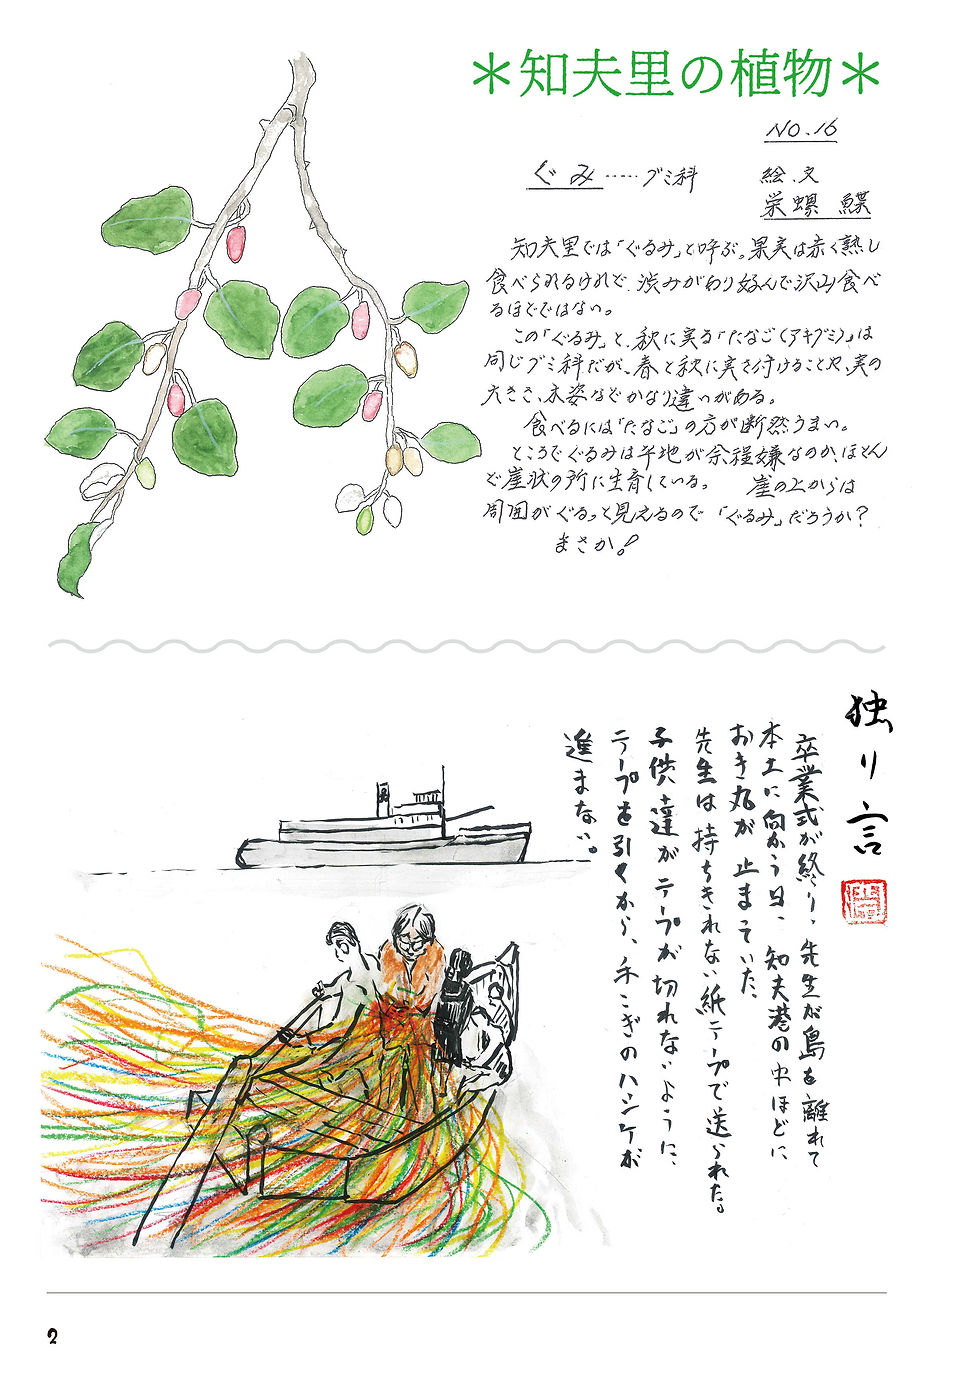 ＊知夫里の植物＊
NO.16
ぐみ……グミ科
絵、文
栄螺 鰈
知夫里では「ぐるみ」と呼ぶ。果実は赤く熟し
食べられるけれど、渋みがあり好んで沢山食べ
るほどではない。
この「ぐるみ」と、秋に実る「たなご(アキグミ)」は
同じグミ科だが、春と秋に実を付けることや、実の
大きさ、木姿などかなり違いがある。
食べるには「たなご」の方が断然うまい。
ところでぐるみは平地が余程嫌なのか、ほとん
ど崖状の所に生育している。 崖の上からは
周囲がぐるっと見えるので「ぐるみ」だろうか？
まさか！
独り言
卒業式が終り、先生が島を離れて
本土に向かう日、知夫港の中ほどに
おき丸が止まっていた。
先生は持ちきれない紙テープで送られた。
子供達がテープが切れないように、
テープを引くから、手こぎのハンケが
進まない。
2